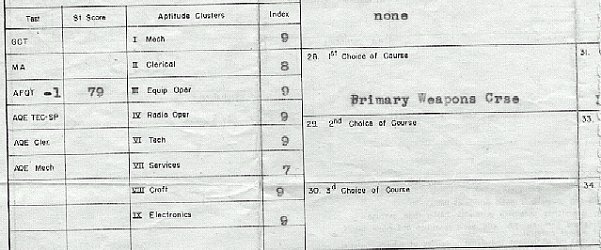 Test St Score Aptitude Clusters Index
GCT I Mech 9
MA II Clerical 8
AFQT -1 79 III Equip Oper 9
AQE TEC-SP IV Radio Oper 9
AQE Cler. VI Tech 9
AQE Mech VII Services 7
VIII Craft 9
IX Electronics 9
none
28. 1st Choice of Course 31.
Primary Weapons Crse
29. 2nd Choice of Course 33.
30. 3d Choice of Course 34.